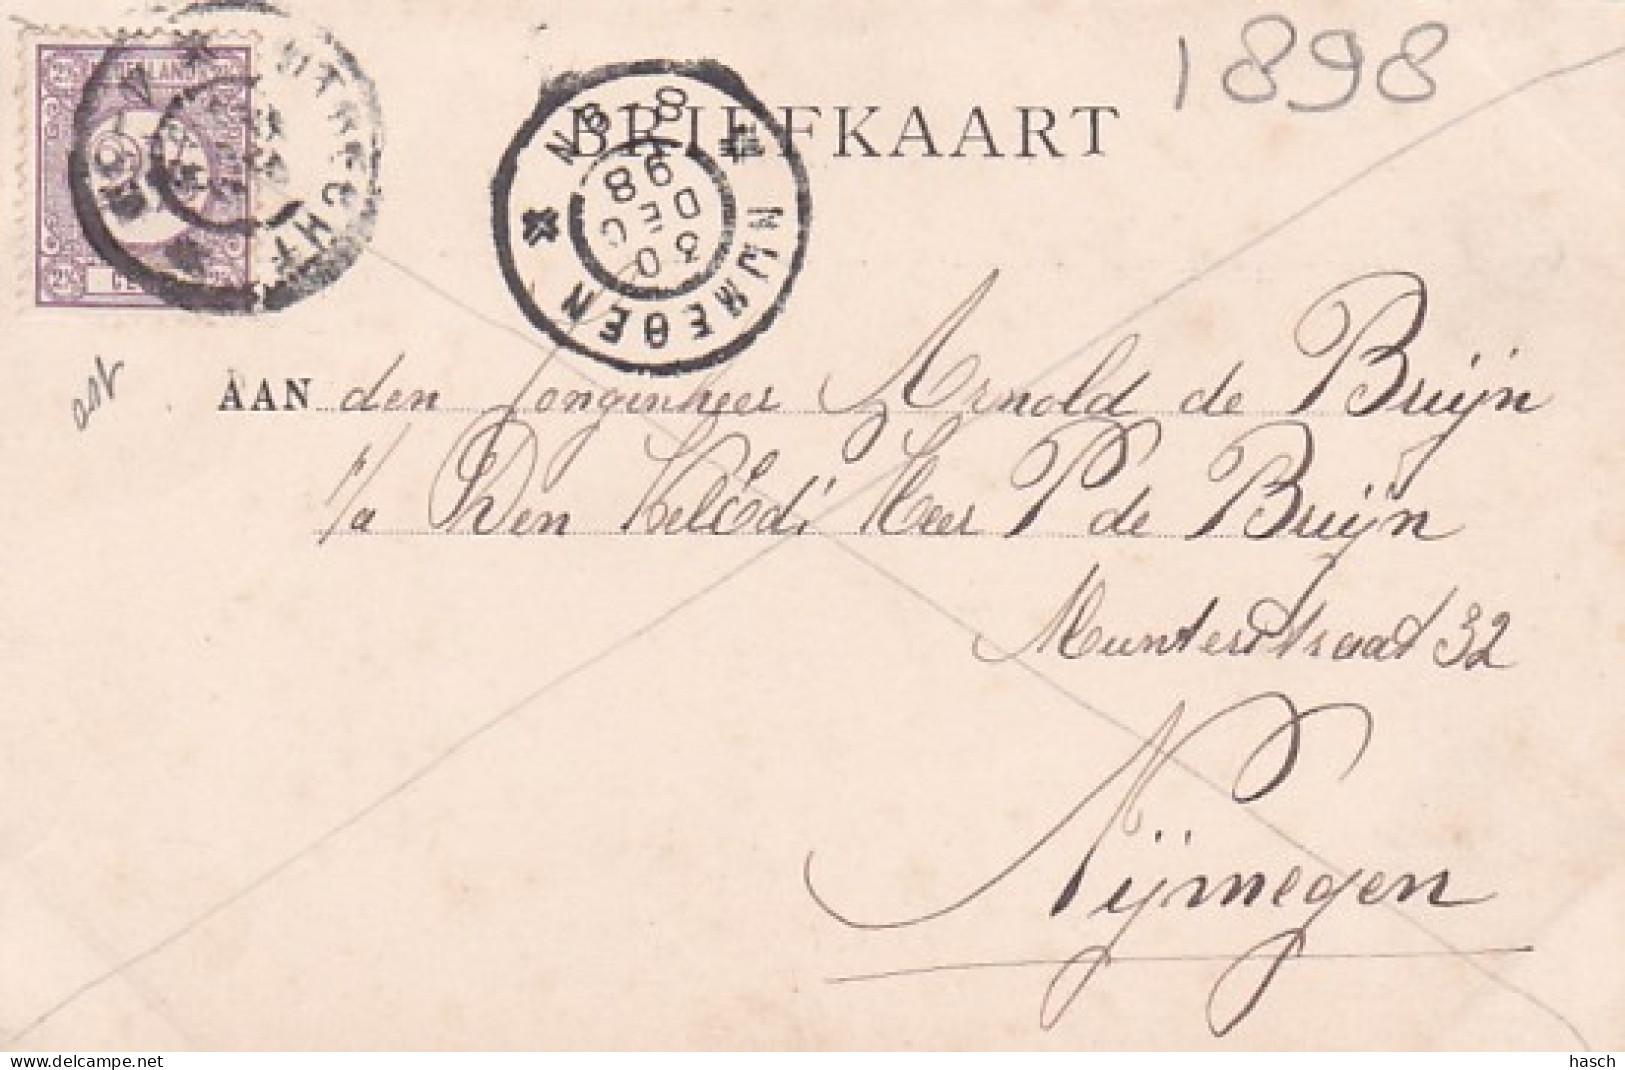 1898
BRIEFKAART
NEDERLAND
2½
UTRECHT
NIJMEGEN
8-9N
30 DEC
98
AAN den Jongenheer Arnold de Bruijn
P/a Den WelEd. Heer P de Bruijn
Munterstraat 32
Nijmegen
www.delcampe.net
hasch